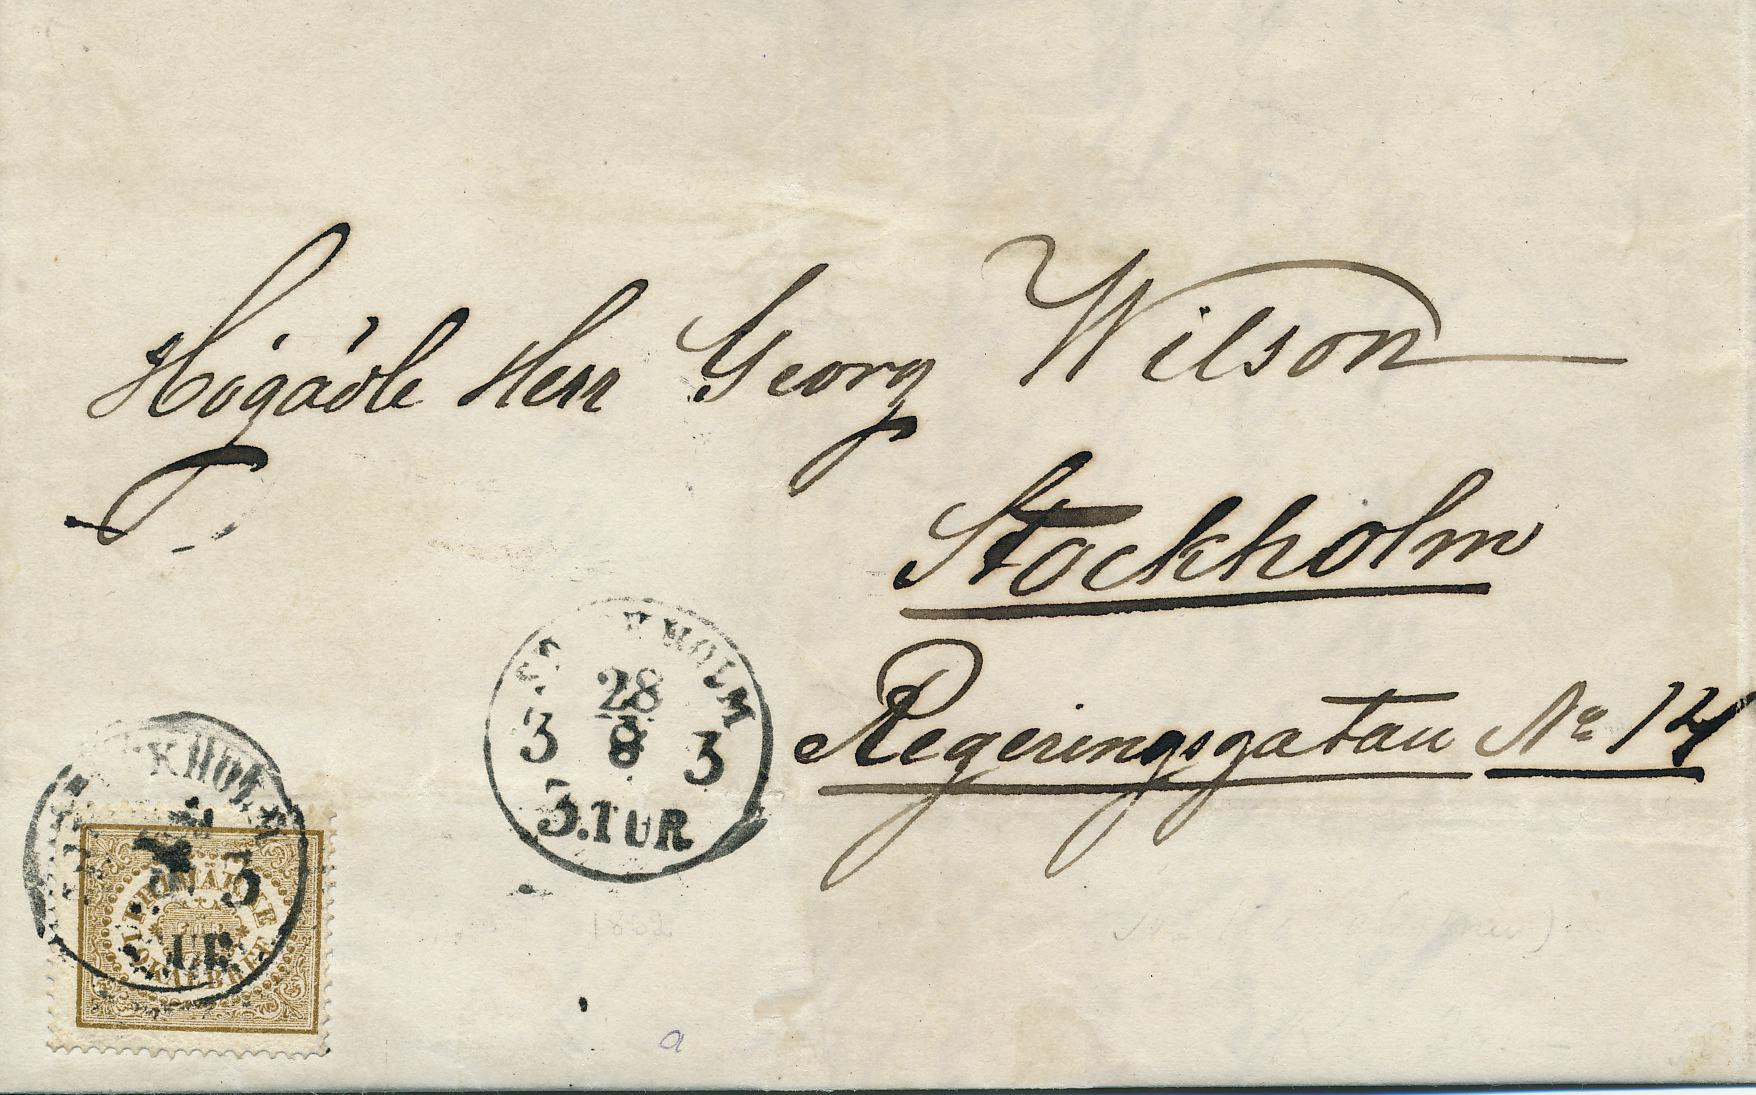 Högädle Herr Georg Wilson
Stockholm
Regeringsgatan No 14
STOCKHOLM
28
3 8 3
3.TUR
KHOLM
3
UR
FRIMÄRKE
LOKALBREF
1862
a